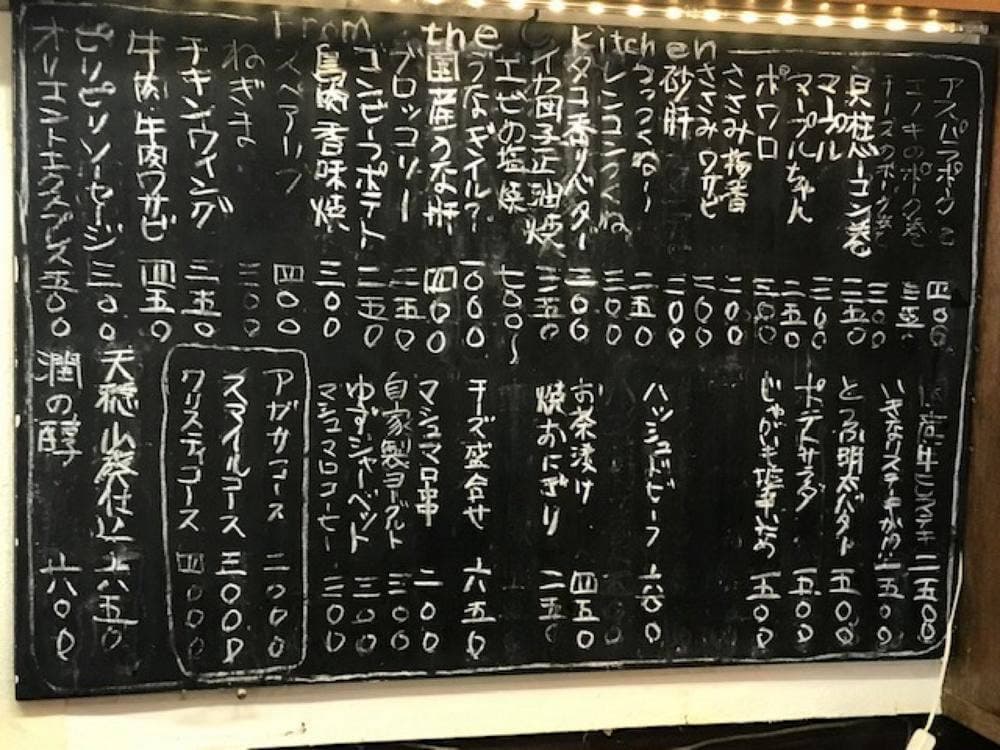 From the Kitchen
アスパラポーク 四〇〇
エノキのポーク巻 三五〇
チーズのポーク巻 三〇〇
貝柱ベーコン巻 二五〇
マープル 三〇〇
マープルちゃん 二五〇
ポワロ 三〇〇
ささみ梅香 二〇〇
ささみワサビ 二〇〇
砂肝 二〇〇
つくね 二五〇
レンコンつくね 三〇〇
タコ香りバター 三〇〇
イカ団子正油焼 三五〇
エビの塩焼 七〇〇〜
うなぎイル? 一〇〇〇
国産うな肝 四〇〇
ブロッコリー 二五〇
コンビーフポテト 二五〇
鳥肉香味焼 三〇〇
スペアリブ 四〇〇
ねぎま 三〇〇
チキンウィング 三五〇
牛肉・牛肉ワサビ 四五〇
ピリピリソーセージ 三〇〇
オリエントエクスプレス 五〇〇
二五〇〇
いきなりステーキか!?! 一五〇〇
とろろ明太バター 五〇〇
ポテトサラダ 五〇〇
じゃがいも塩辛いため 五〇〇
ハッシュドビーフ 六〇〇
お茶漬け 四五〇
焼おにぎり 二五〇
チーズ盛合せ 六五〇
マシュマロ串 二〇〇
自家製ヨーグルト 三〇〇
ゆずシャーベット 三〇〇
マシュマロコーヒー 三〇〇
アガサコース 二〇〇〇
スマイルコース 三〇〇〇
クリスティコース 四〇〇〇
天穏 山廃仕込 六五〇
潤の醇 六〇〇